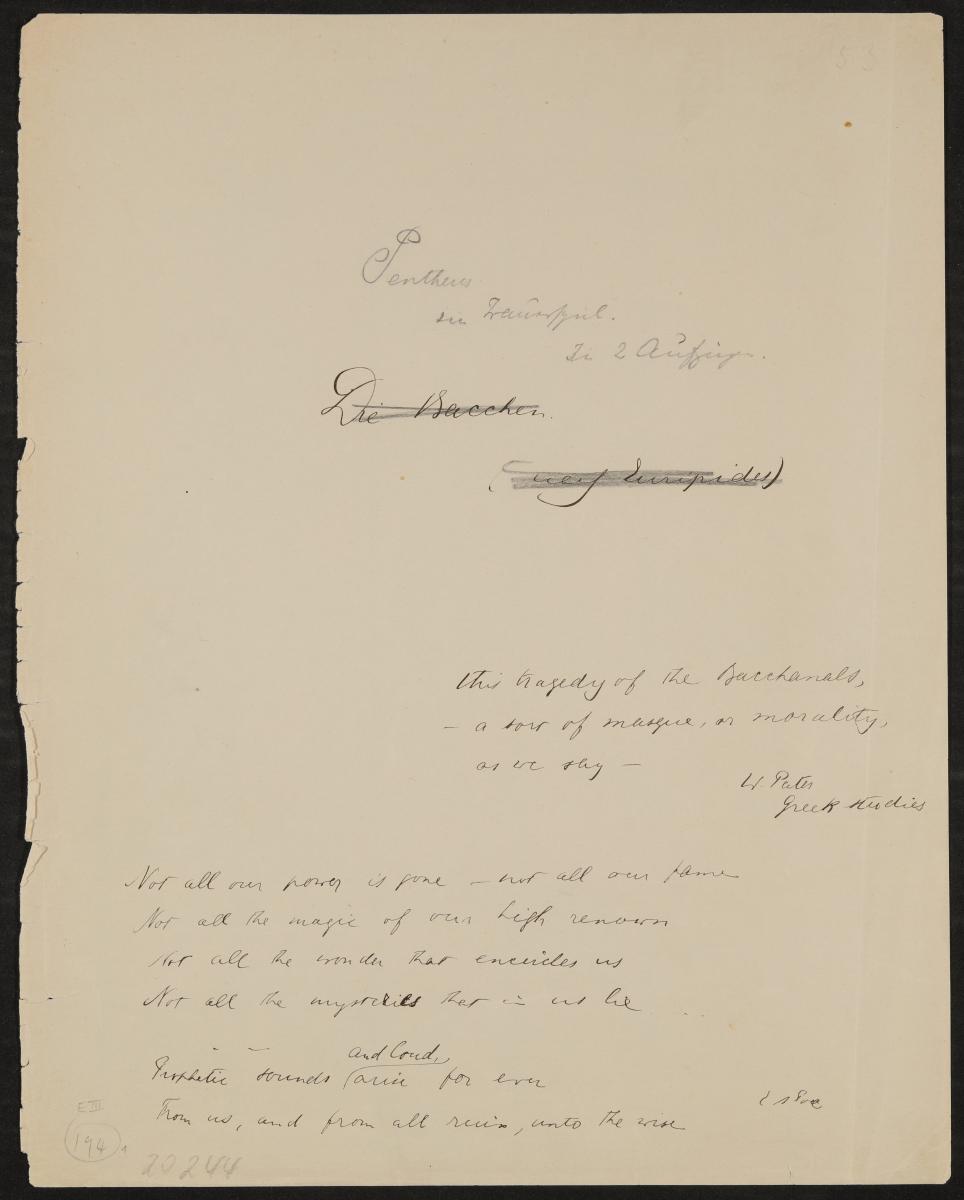 53
Pentheus
ein Trauerspiel.
In 2 Aufzügen.
Die Bacchen.
(nach Euripides)
this tragedy of the Bacchanals,
– a sort of masque, or morality,
as we say –
W. Pater
Greek studies
Not all our power is gone – not all our fame
Not all the magic of our high renown
Not all the wonder that encircles us
Not all the mysteries that in us lie ...
and loud,
Prophetic sounds arise for ever
From us, and from all ruin, unto the wise
E A Poe
E III
194 1
20244